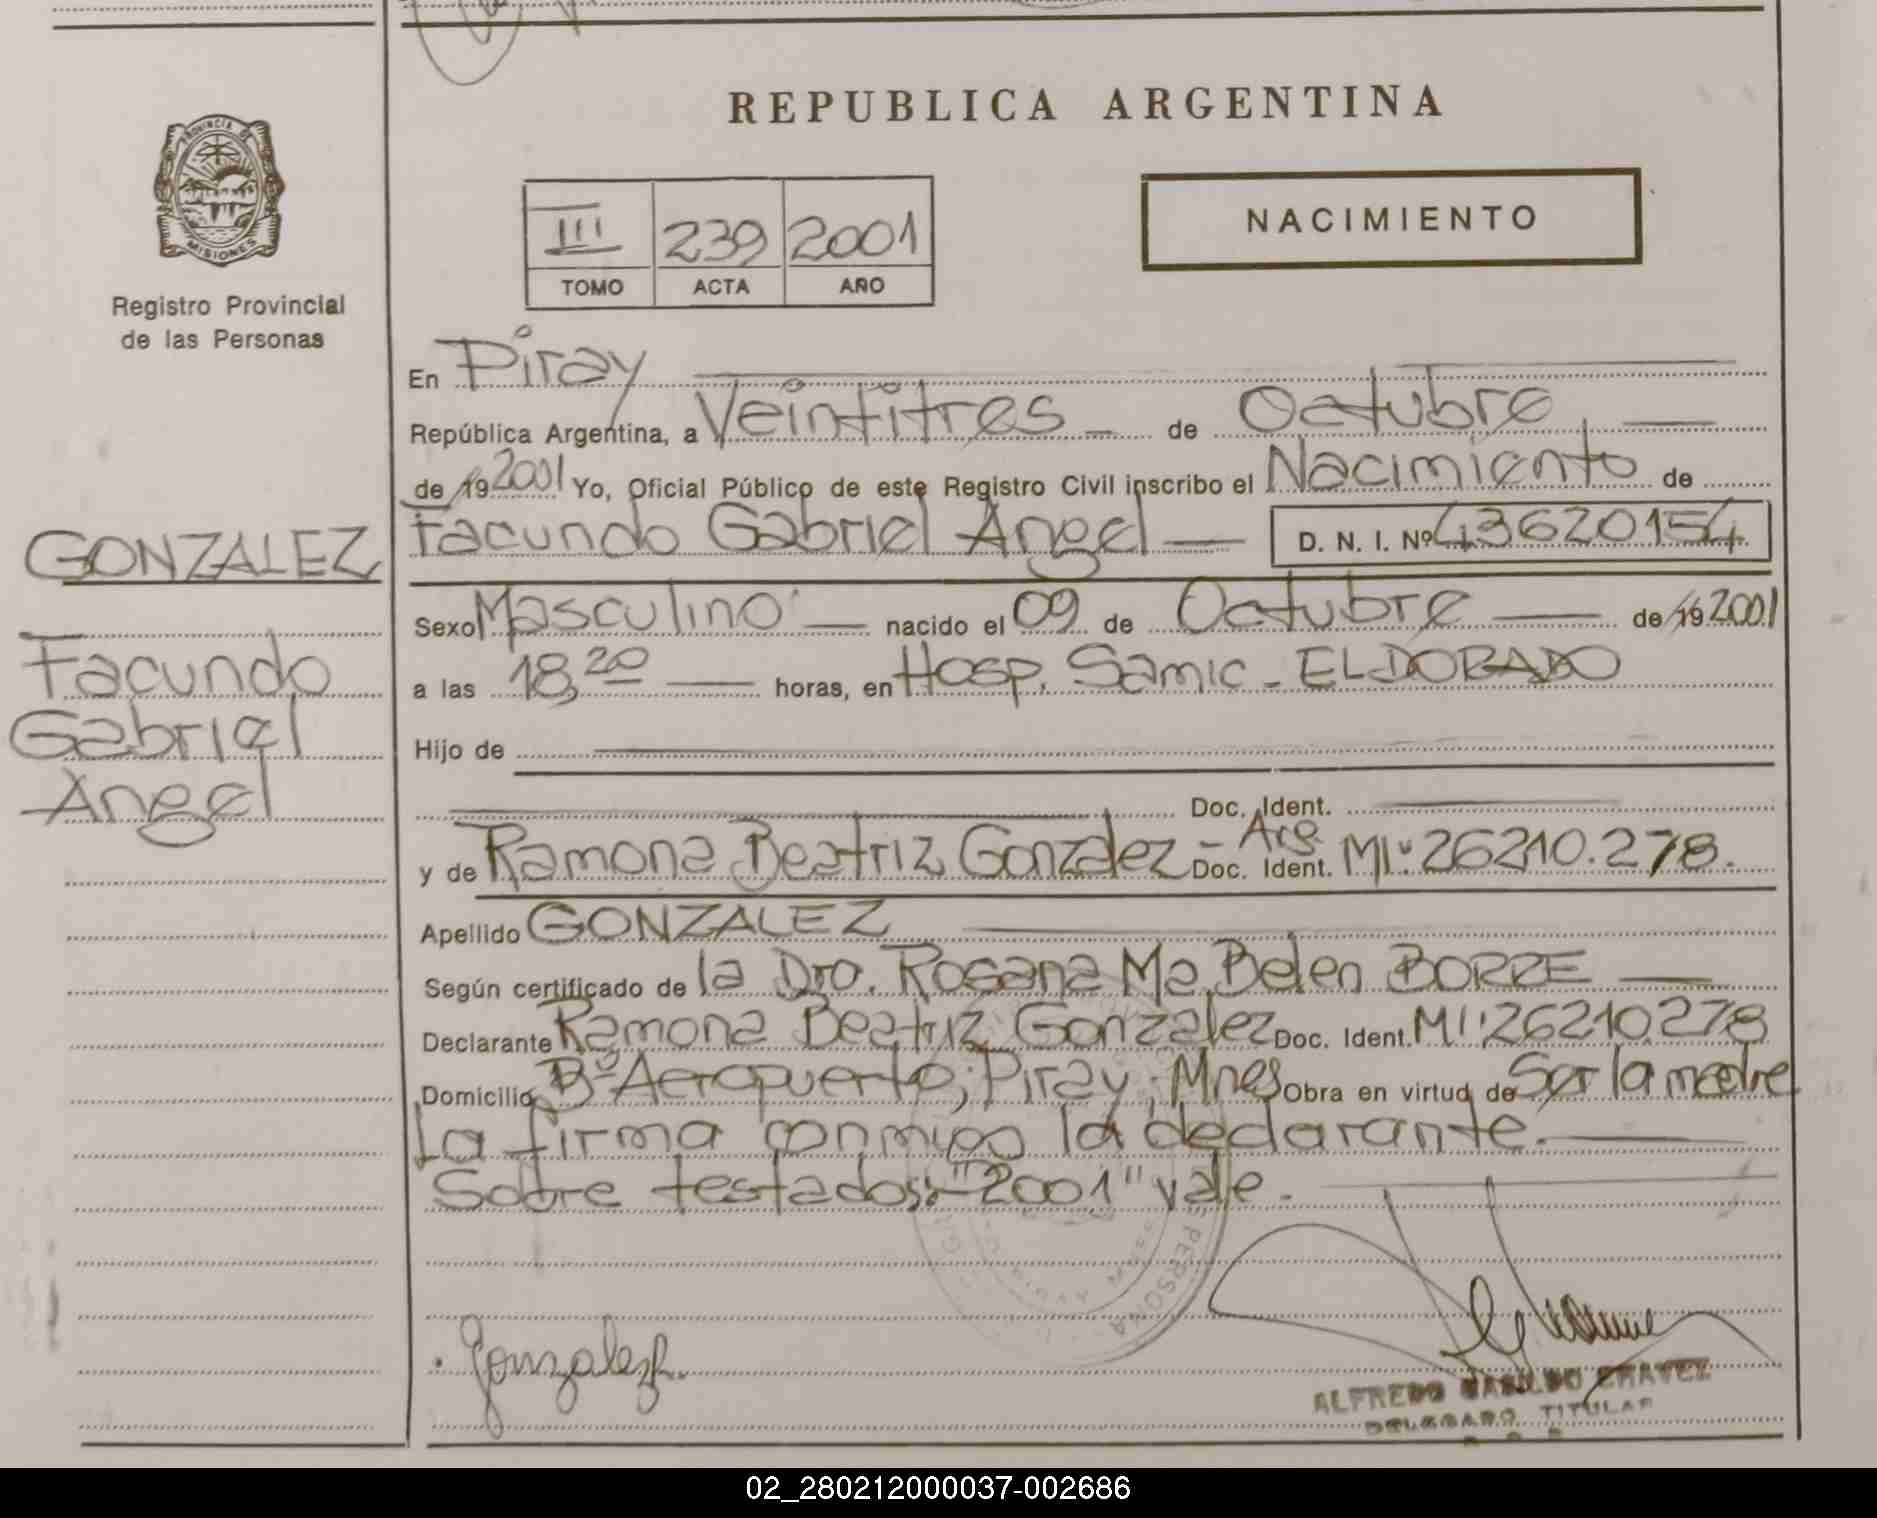 REPUBLICA ARGENTINA
PROVINCIA DE
MISIONES
Registro Provincial
de las Personas
III 239 2001
TOMO ACTA AÑO
NACIMIENTO
En Piray
República Argentina, a Veintitres de Octubre
de 19 2001 Yo, Oficial Público de este Registro Civil inscribo el Nacimiento de
Facundo Gabriel Angel D. N. I. Nº 43620154
GONZALEZ
Facundo
Gabriel
Angel
Sexo Masculino nacido el 09 de Octubre de 19 2001
a las 18,20 horas, en Hosp. Samic - ELDORADO
Hijo de
Doc. Ident.
y de Ramona Beatriz Gonzalez - Arg. Doc. Ident. MI: 26210.278.
Apellido GONZALEZ
Según certificado de la Dra. Rosana Ma Belen BORRE
Declarante Ramona Beatriz Gonzalez Doc. Ident. MI: 26210278
Domicilio Bº Aeropuerto; Piray, Mnes Obra en virtud de Ser la madre
La firma conmigo la declarante.
Sobre testados: "2001" vale.
PERSONA
Gonzalez
ALFREDO CHAVEZ
DELEGADO TITULAR
02_280212000037-002686